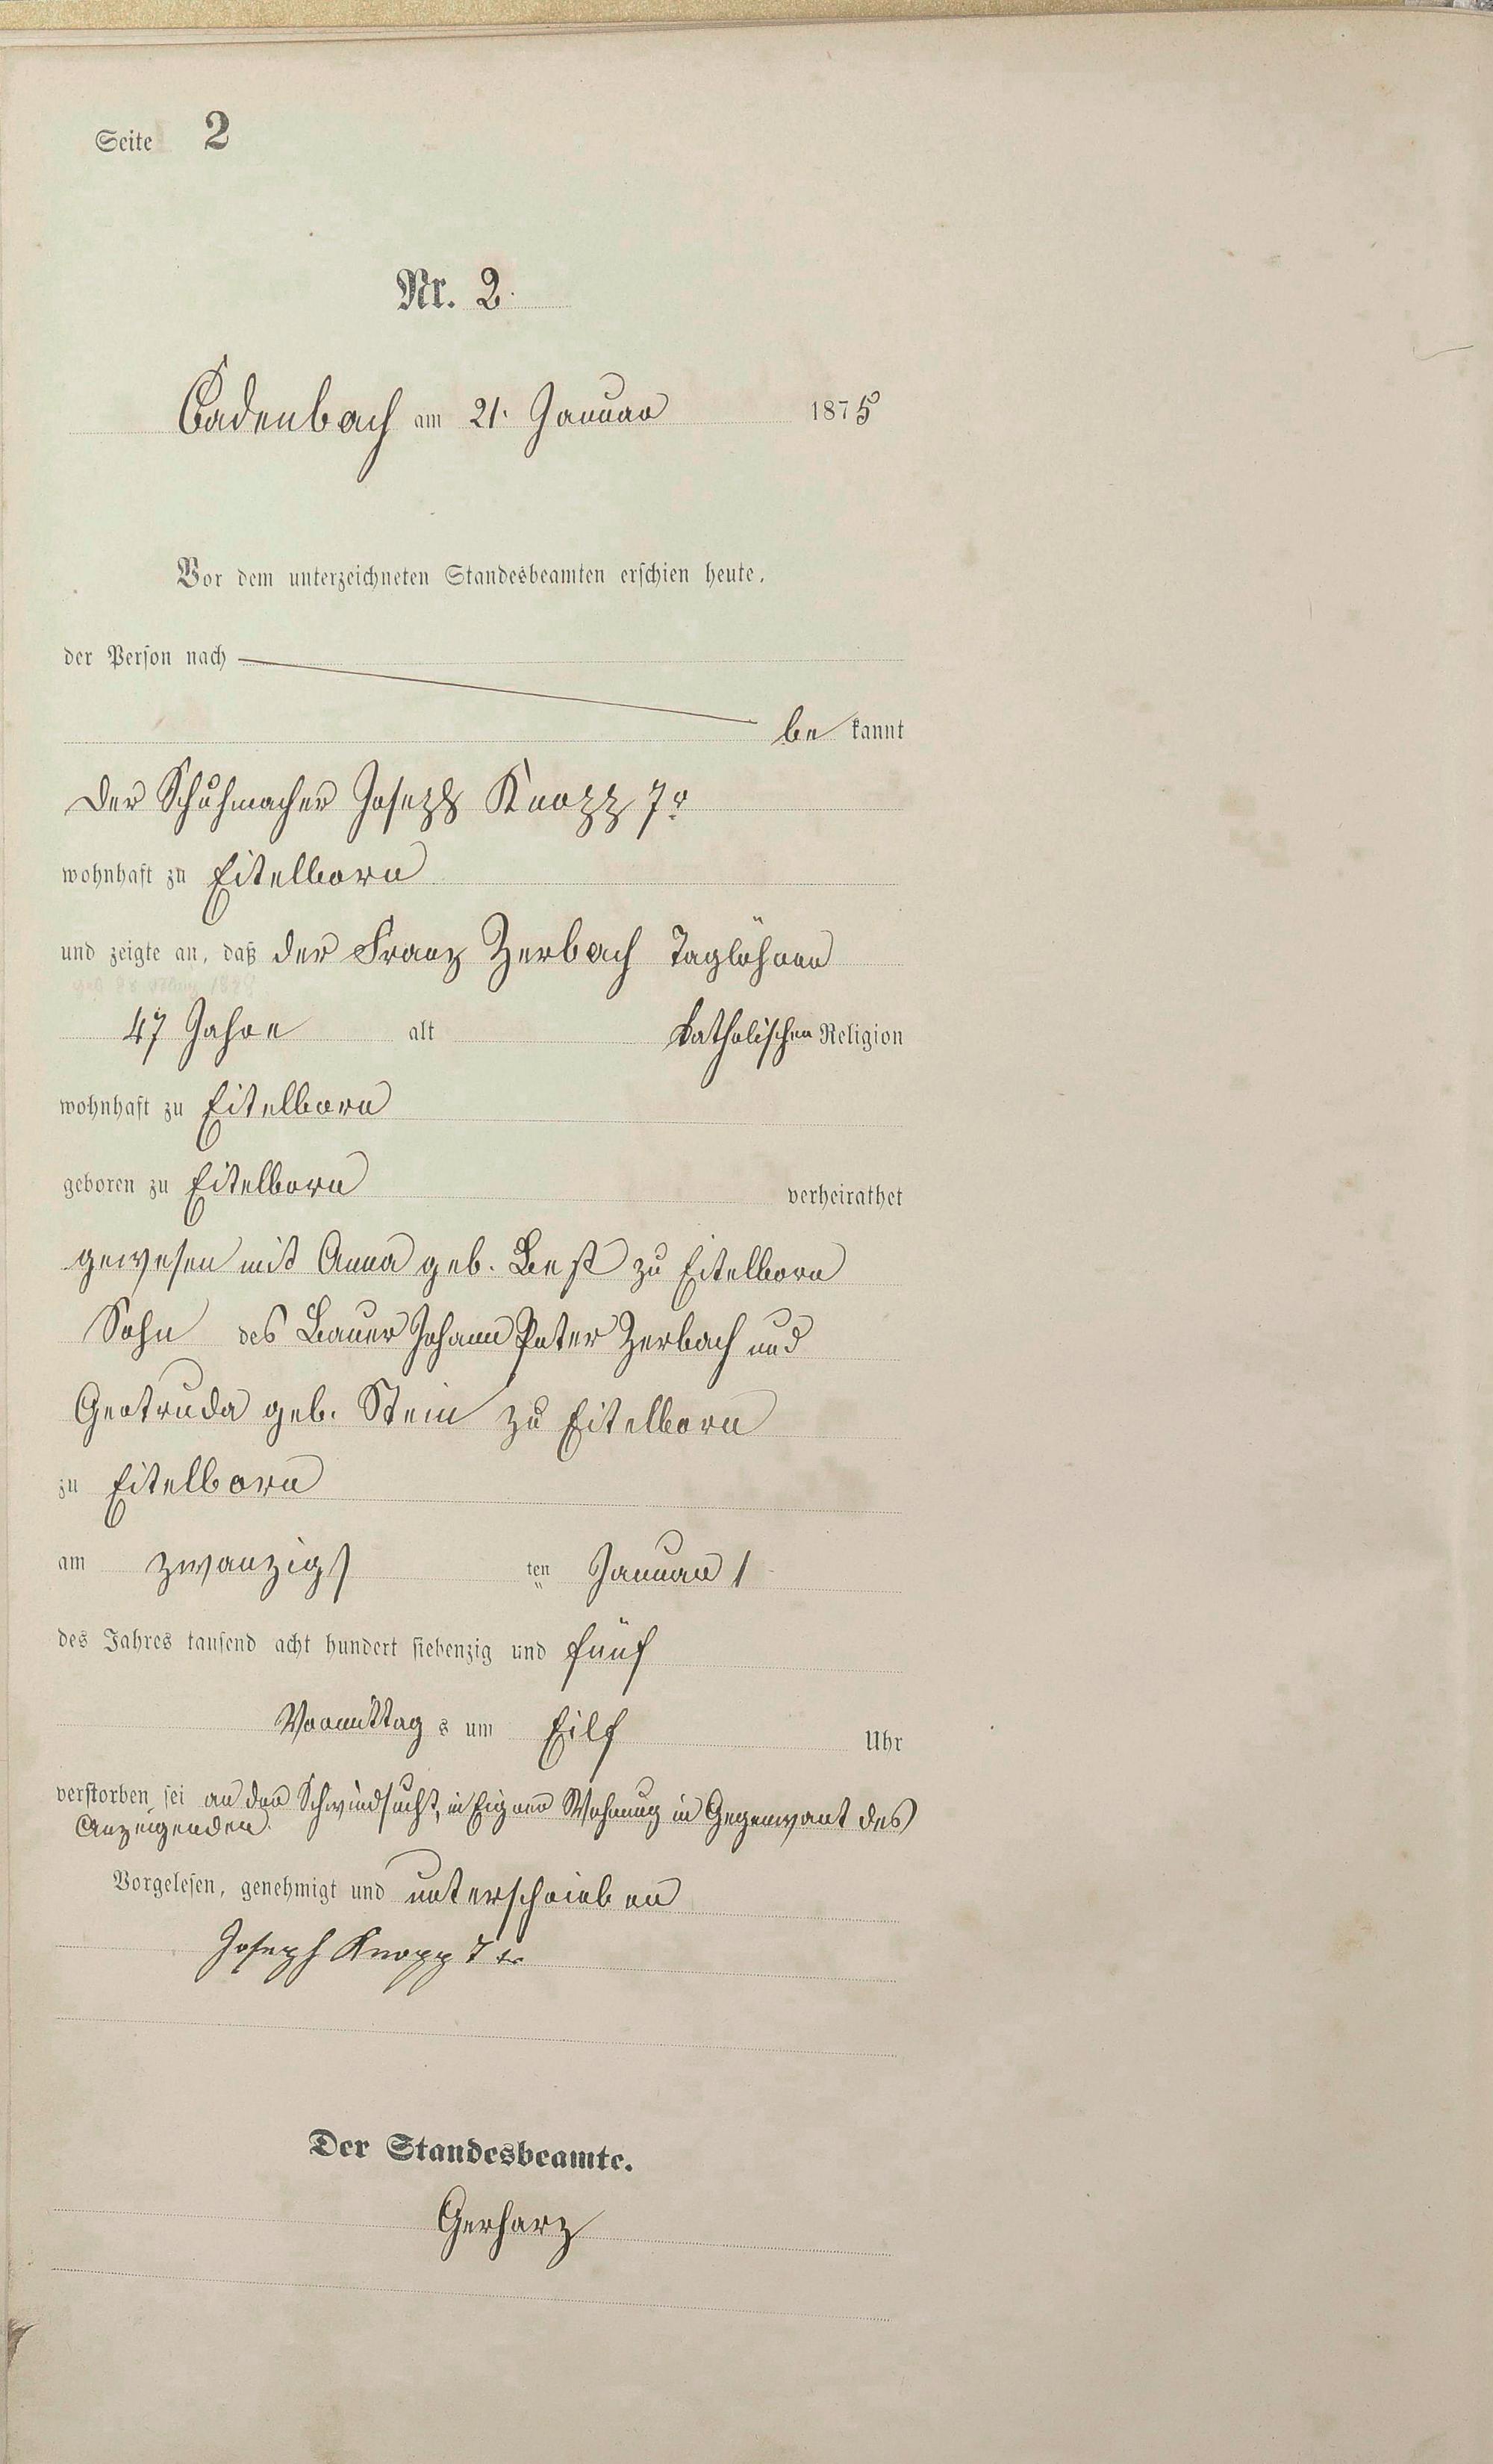 Seite 2
Nr. 2.
Cadenbach am 21. Januar 1875
Vor dem unterzeichneten Standesbeamten erschien heute,
der Person nach
be kannt
der Schuhmacher Joseph Knopp 7r
wohnhaft zu Eitelborn
und zeigte an, daß der Franz Zerbach Taglöhner
47 Jahre alt katholischen Religion
wohnhaft zu Eitelborn
geboren zu Eitelborn verheirathet
gewesen mit Anna geb. Best zu Eitelborn
Sohn des Bauer Johann Peter Zerbach und
Gertruda geb. Stein zu Eitelborn
zu Eitelborn
am zwanzigs ten Januar
des Jahres tausend acht hundert siebenzig und fünf
Vormittag s um Eilf Uhr
verstorben sei an der Schwindsucht, in Eigner Wohnung in Gegenwart des
Anzeigenden.
Vorgelesen, genehmigt und unterschrieben
Joseph Knopp 7 er
Der Standesbeamte.
Gerharz